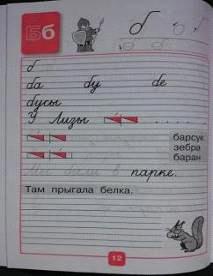 Бб
б
б
ба бу бе
бусы
У Лизы . . . .
барсук
зебра
баран
Мы были в парке.
Там прыгала белка.
12